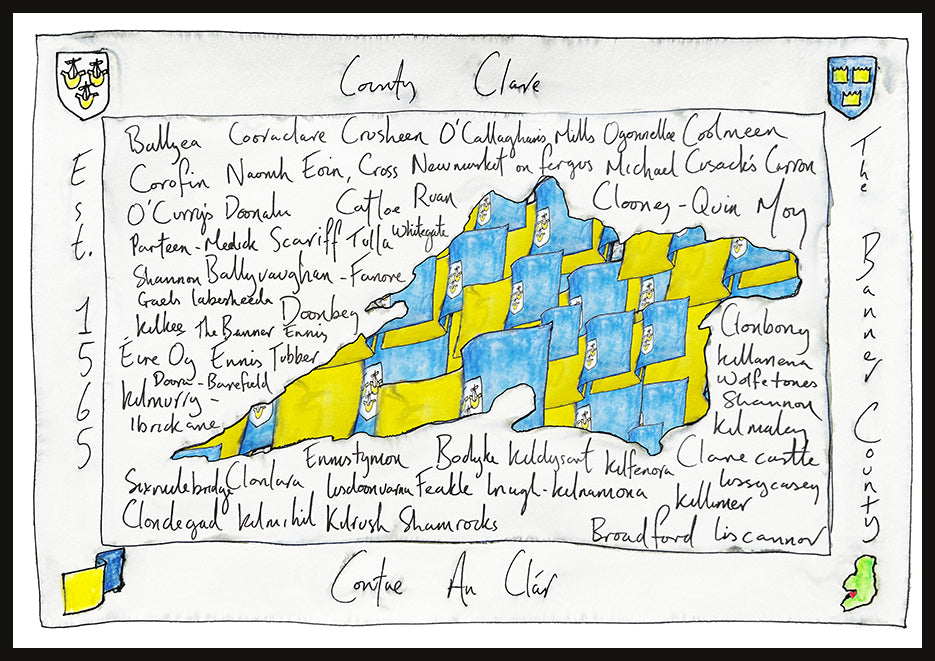 County Clare
Est. 1565
The Banner County
Ballyea Cooraclare Crusheen O'Callaghan's Mills Ogonnelloe Coolmeen
Corofin Naomh Eoin, Cross Newmarket on fergus Michael Cusack's Carron
O'Curry's Doonaha Catloe Ruan Clooney - Quin Moy
Parteen - Meelick Scariff Tulla Whitegate
Shannon Ballyvaughan - Fanore
Gaels
Doonbeg
Kilkee The Banner Ennis
Éire Og Ennis Tubber
Doora - Barefield
Kilmurry -
Ibrickane
Clonbony
Killanena
Wolfetones
Shannon
Kilmaley
Ennistymon Bodyke Kildysart Kilfenora Clarecastle
Sixmilebridge Clonlara Lisdoonvarna Feakle Inagh - Kilnamona Killimer Lissycasey
Clondegad Kilmihil Kilrush Shamrocks
Broadford Liscannor
Contae An Chláir